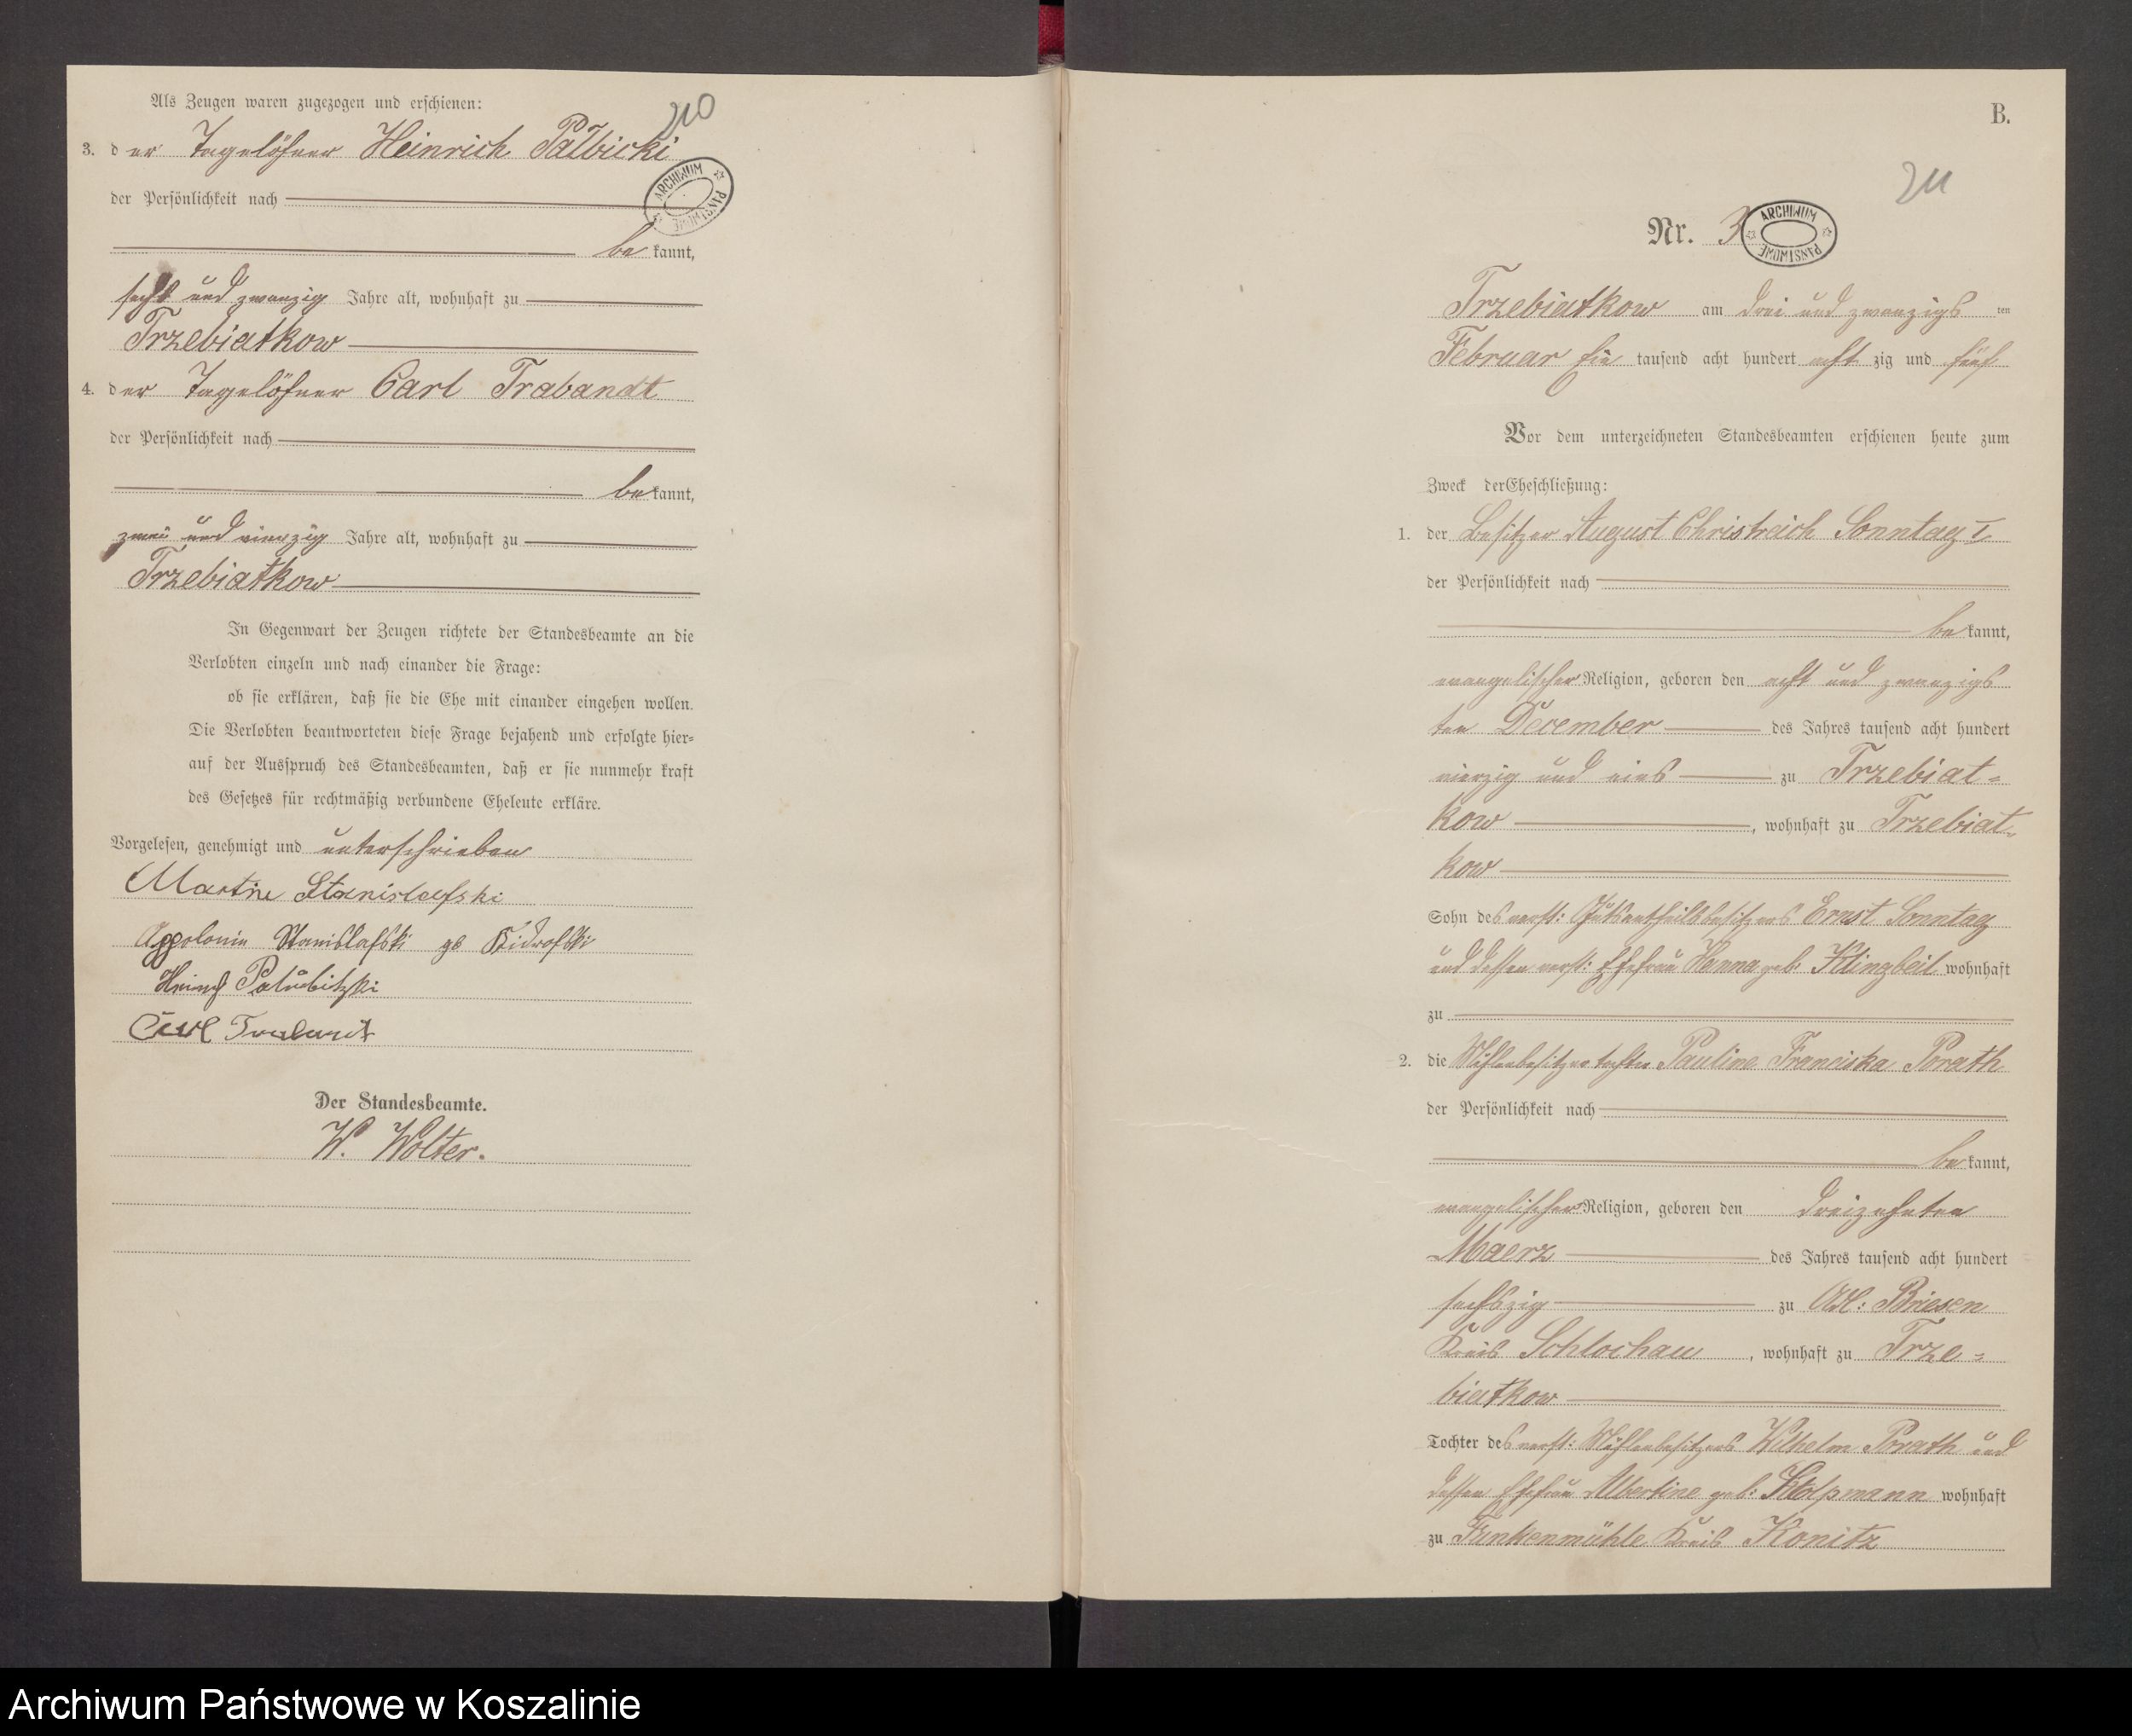 210
Als Zeugen waren zugezogen und erschienen:
3. der Tagelöhner Heinrich Palbicki
der Persönlichkeit nach
ARCHIWUM PAŃSTWOWE
bekannt,
sechs und zwanzig Jahre alt, wohnhaft zu
Trzebiatkow
4. der Tagelöhner Carl Trabandt
der Persönlichkeit nach
bekannt,
zwei und vierzig Jahre alt, wohnhaft zu
Trzebiatkow
In Gegenwart der Zeugen richtete der Standesbeamte an die
Verlobten einzeln und nach einander die Frage:
ob sie erklären, daß sie die Ehe mit einander eingehen wollen.
Die Verlobten beantworteten diese Frage bejahend und erfolgte hier=
auf der Ausspruch des Standesbeamten, daß er sie nunmehr kraft
des Gesetzes für rechtmäßig verbundene Eheleute erkläre.
Vorgelesen, genehmigt und unterschrieben
Martin Stanislafski
Appolonia Stanislafski gb
Palubitzki
Carl Trabandt
Der Standesbeamte.
W. Wolter.
B.
211
Nr. 3
ARCHIWUM PAŃSTWOWE
Trzebiatkow am drei und zwanzigsten
Februar ein tausend acht hundert acht zig und fünf
Vor dem unterzeichneten Standesbeamten erschienen heute zum
Zweck der Eheschließung:
1. der Besitzer August Christreich Sonntag I
der Persönlichkeit nach
bekannt,
evangelischer Religion, geboren den acht und zwanzigs
ten December des Jahres tausend acht hundert
vierzig und eins zu Trzebiat=
kow, wohnhaft zu Trzebiat=
kow
Sohn des verst: Gutsantheilsbesitzers Ernst Sonntag
und dessen verst: Ehefrau Hanna geb: Klingbeil wohnhaft
zu
2. die Mühlenbesitzertochter Pauline Franciska Porath
der Persönlichkeit nach
bekannt,
evangelischer Religion, geboren den dreizehnten
Maerz des Jahres tausend acht hundert
sechszig zu Adl: Briesen
Kreis Schlochau, wohnhaft zu Trze=
biatkow
Tochter des verst: Mühlenbesitzers Wilhelm Porath und
dessen Ehefrau Albertine geb: Stolpmann wohnhaft
zu Funkenmühle Kreis Konitz
Archiwum Państwowe w Koszalinie